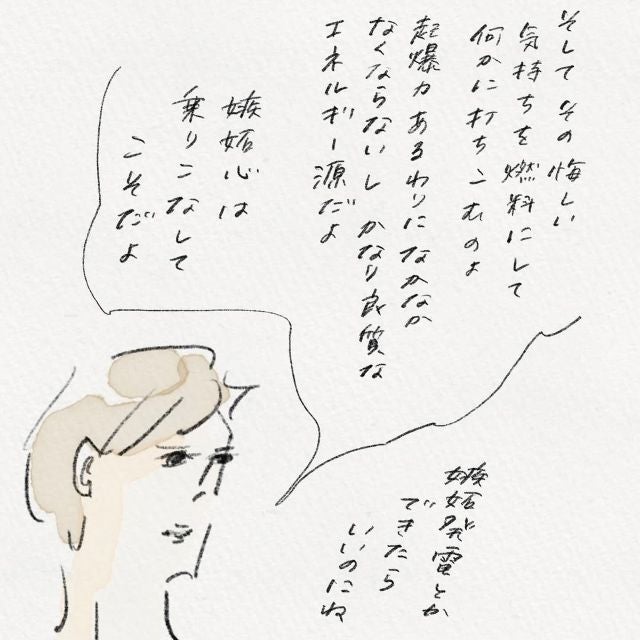 そしてその悔しい
気持ちを燃料にして
何かに打ちこむのよ
起爆力あるわりになかなか
なくならないし かなり良質な
エネルギー源だよ
嫉妬心は
乗りこなして
こそだよ
嫉妬発電とか
できたら
いいのにね